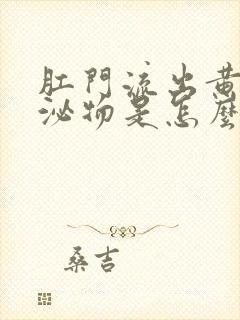 肛門流出黃
泌物是怎麼
桑吉